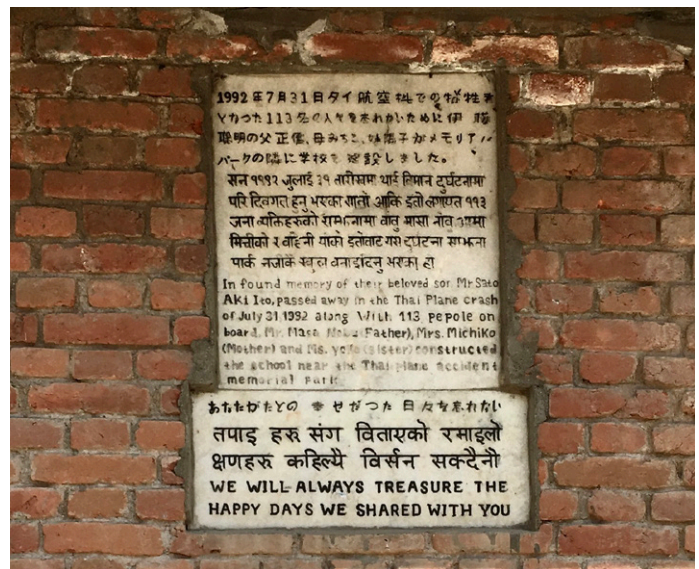 1992年7月31日タイ航空機での犠牲者
となった113名の人々を忘れないために伊藤
聡明の父正信、母みちこ、妹 子がメモリアル
パークの隣に学校を建設しました。
सन १९९२ जुलाई ३१ तारीखमा थाई विमान दुर्घटनामा
परि दिवगत हुनु भएका सातो आकि इतो लगायत ११३
जना व्यक्तिहरुको सम्झनामा बावु मासा नोवु आमा
मित्तीको र वहिनी योको इतोवाट यस दुर्घटना सम्झना
पार्क नजीकै स्कुल वनाईदिनु भएको हो
In found memory of their beloved son Mr Sato
Aki Ito, passed away in the Thai Plane crash
of July 31, 1992 along With 113 pepole on
board. Mr. Masa Nobu (Father), Mrs. Michiko
(Mother) and Ms. yoko (sister) constructed
the school near the Thai plane accident
memorial Park
あなたがたとの 幸せだった日々を忘れない
तपाइ हरु संग वितायको रमाइलो
क्षणहरु कहिल्यै विर्सन सक्दैनौ
WE WILL ALWAYS TREASURE THE
HAPPY DAYS WE SHARED WITH YOU